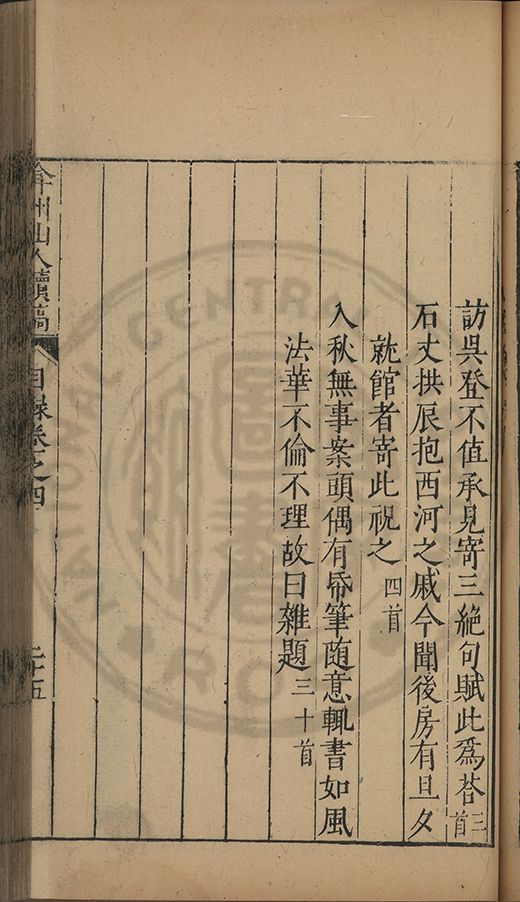 訪吳登不值承見寄三絕句賦此爲荅三首
石丈拱辰抱西河之戚今聞後房有旦夕
就館者寄此祝之四首
入秋無事案頭偶有帋筆随意輒書如風
法華不倫不理故曰雜題三十首
弇州山人續稿
目録卷之四
二十五
CENTRAL LIBRARY
圖書